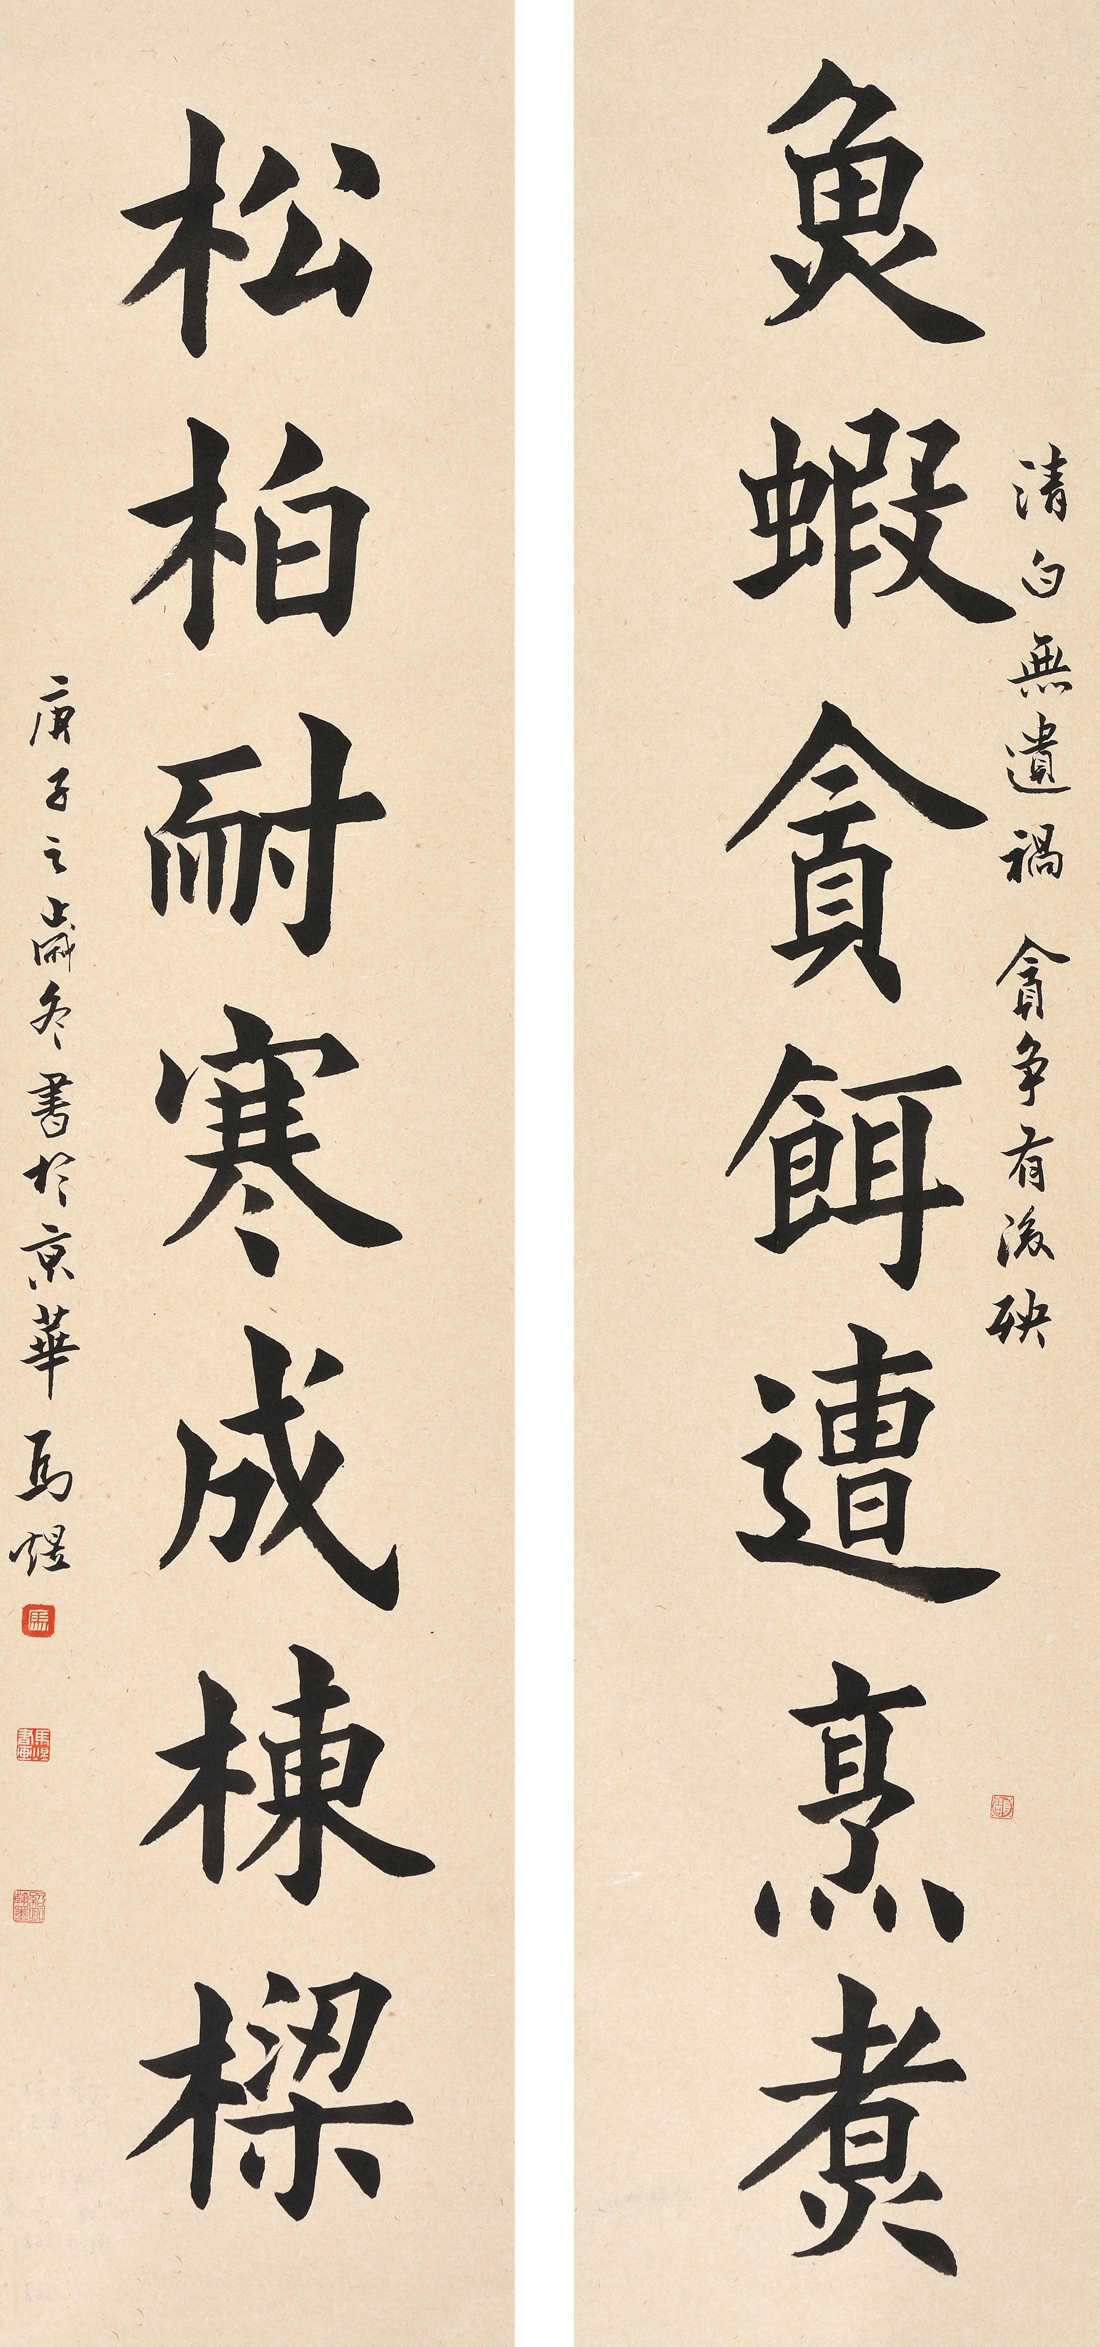 清白無遺禍 貪爭有後殃
魚蝦貪餌遭烹煮
松柏耐寒成棟樑
庚子之歲冬書於京華 馬煜